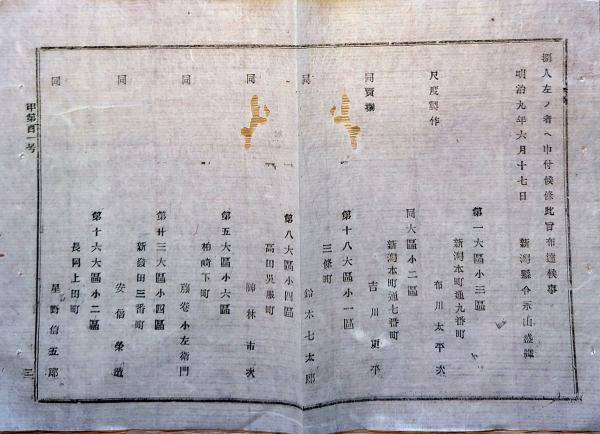 捌人左ノ者ヘ申付候條此旨布達候事
明治九年六月十七日
新潟縣令永山盛輝
尺度製作
第一大區小三區
新潟本町通九番町
布川太平次
同賣捌
同大區小二區
新潟本町通七番町
吉川
平
第十八大區小一區
三條町
同
鈴木七太郎
第八大區小四區
高田呉服町
同
林市次
第五大區小六區
柏崎下町
同
藤卷小左衛門
第廿三大區小四區
新發田三番町
同
安倍榮造
第十六大區小二區
長岡上田町
同
星野信五郎
甲第百一号
三